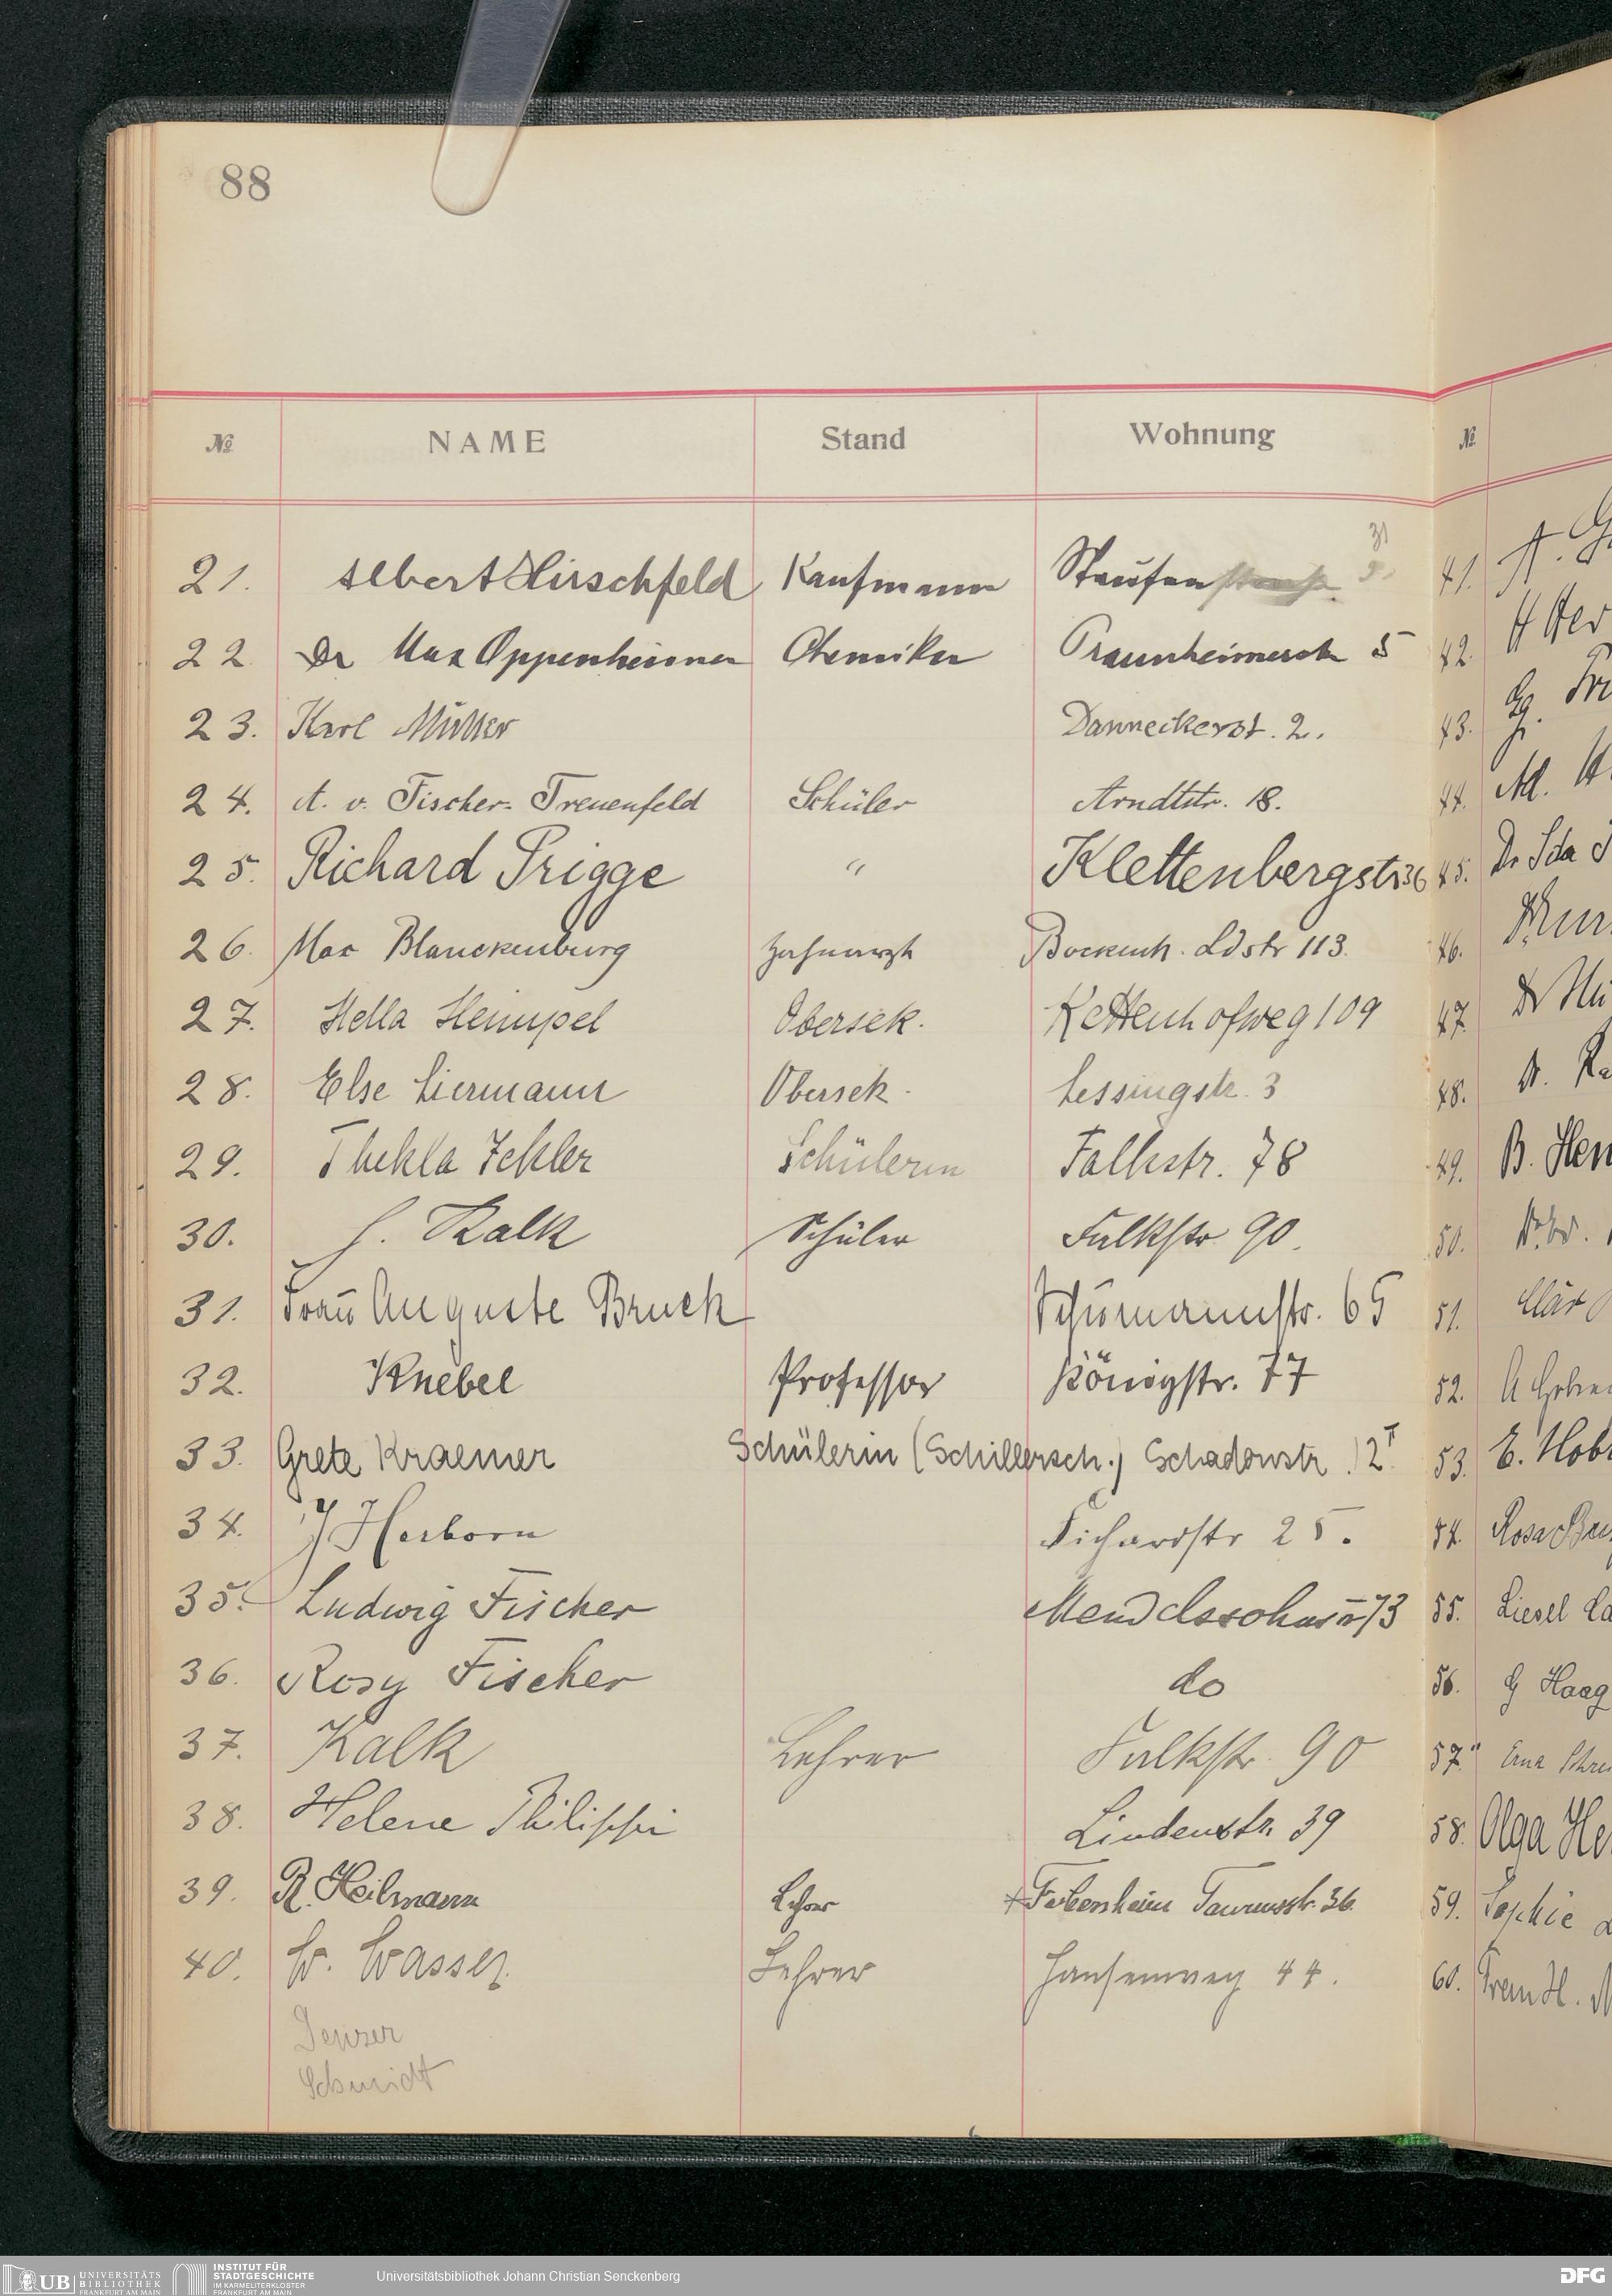 88
№ NAME Stand Wohnung №
21. Albert Hirschfeld Kaufmann Staufenstrasse 31
22. Dr Max Oppenheimer Chemiker Praunheimerstr 5
23. Karl Müller Danneckerst. 2.
24. A. v. Fischer-Treuenfeld Schüler Arndtstr. 18.
25. Richard Prigge " Klettenbergstr 36
26. Max Blanckenburg Zahnarzt Bockenh. Ldstr 113.
27. Hella Hempel Obersek. Kettenhofweg 109
28. Else Liermann Obersek. Lessingstr. 3
29. Thekla Jekler Schülerin Falkstr. 78
30. H. Kalk Schüler Falkstr 90.
31. Frau Auguste Bruck Schumannstr. 65
32. Knebel Professor Königstr. 77
33. Grete Kraemer Schülerin (Schillersch.) Schadowstr. 12 I
34. J Herborn Fichardstr 25.
35. Ludwig Fischer Mendelssohnstr 73
36. Rosy Fischer do
37. Kalk Lehrer Falkstr. 90
38. Helene Philippi Lindenstr. 39
39. R. Heilmann Lehrer Taunusstr. 36.
40. W. Wasser Lehrer Hansenweg 44.
Schmidt
41. A.
42. H
43. Gg.
44. Ad.
45. Dr Ida
46.
47. Dr
48. A.
49. B.
50.
51.
52. A
53. E.
54. Rosa
55. Liesel
56. G Haag
57. Erna
58. Olga
59. Sophie
60. Frau H.
UB UNIVERSITÄTS
BIBLIOTHEK
FRANKFURT AM MAIN
INSTITUT FÜR
STADTGESCHICHTE
IM KARMELITERKLOSTER
FRANKFURT AM MAIN
Universitätsbibliothek Johann Christian Senckenberg
DFG